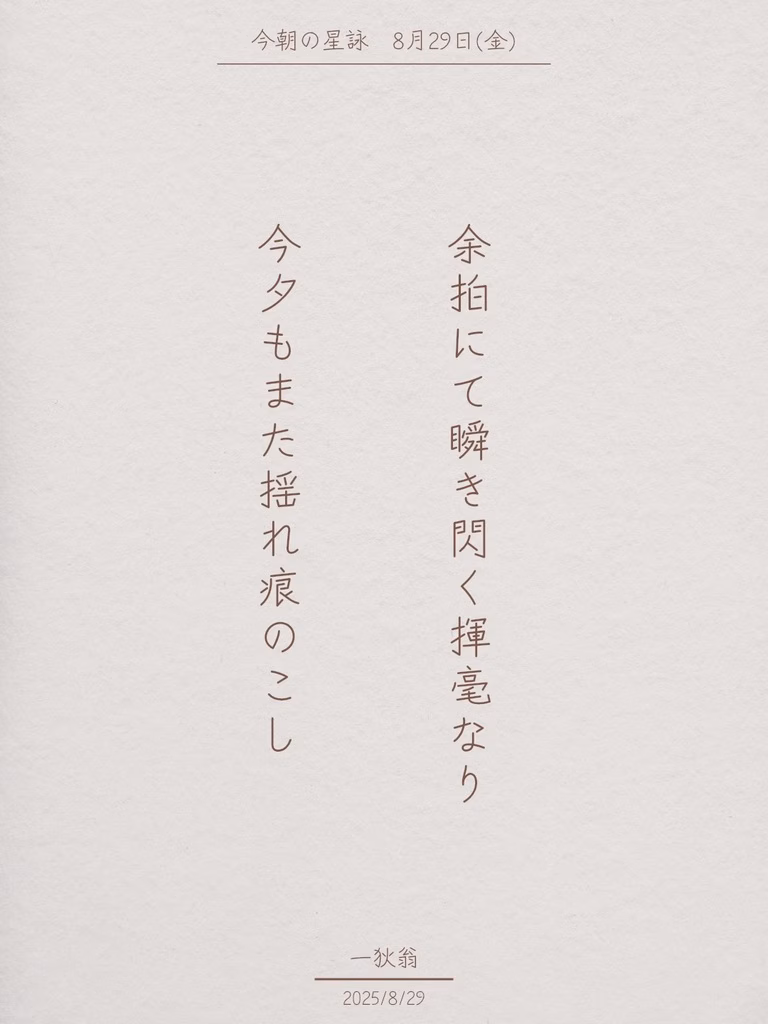 今朝の星詠　8月29日(金)
余拍にて瞬き閃く揮毫なり
今夕もまた揺れ痕のこし
一狄翁
2025/8/29